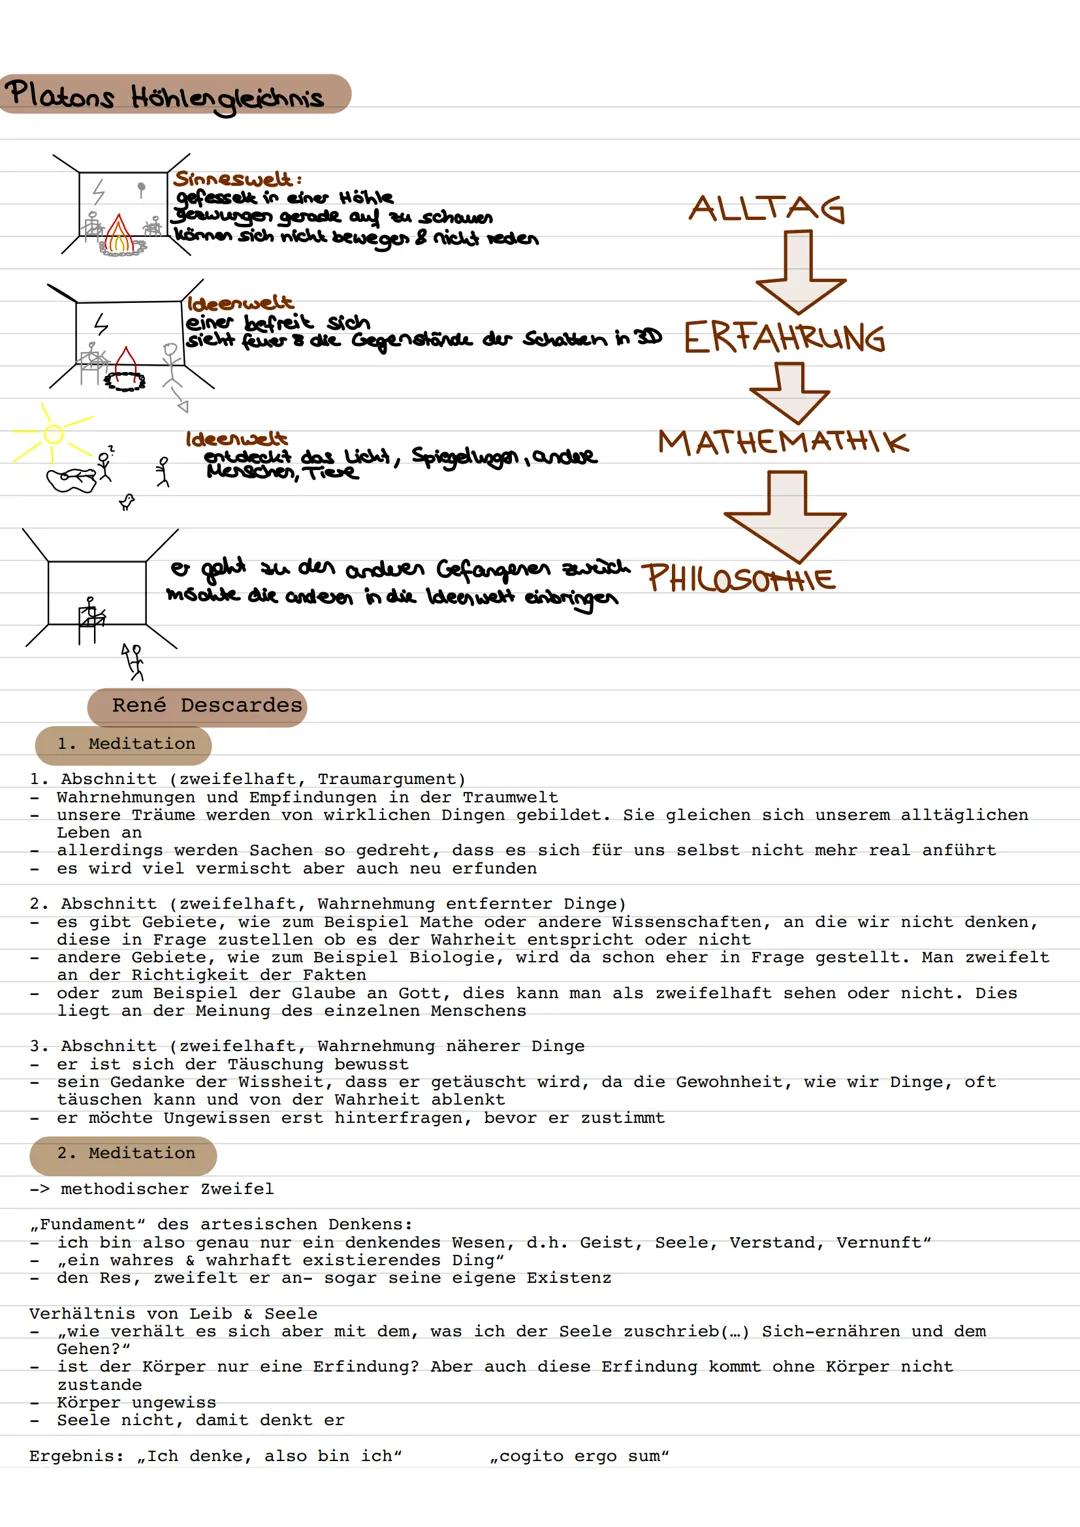 Platons Höhlengleichnis
Sinneswelt:
gefesselt in einer Höhle
gezwungen gerade auf zu schauen
können sich nicht bewegen & nicht reden
ALLTAG
Ideenwelt
einer befreit sich
sieht feuer & die Gegenstände der Schatten in 3D
ERFAHRUNG
Ideenwelt
entdeckt das Licht, Spiegelungen, andere
Menschen, Tiere
MATHEMATHIK
?
er geht zu den anderen Gefangenen zurück
möchte die anderen in die Ideenwelt einbringen
PHILOSOPHIE
René Descardes
1. Meditation
1. Abschnitt (zweifelhaft, Traumargument)
- Wahrnehmungen und Empfindungen in der Traumwelt
- unsere Träume werden von wirklichen Dingen gebildet. Sie gleichen sich unserem alltäglichen
Leben an
- allerdings werden Sachen so gedreht, dass es sich für uns selbst nicht mehr real anführt
- es wird viel vermischt aber auch neu erfunden
2. Abschnitt (zweifelhaft, Wahrnehmung entfernter Dinge)
- es gibt Gebiete, wie zum Beispiel Mathe oder andere Wissenschaften, an die wir nicht denken,
diese in Frage zustellen ob es der Wahrheit entspricht oder nicht
- andere Gebiete, wie zum Beispiel Biologie, wird da schon eher in Frage gestellt. Man zweifelt
an der Richtigkeit der Fakten
- oder zum Beispiel der Glaube an Gott, dies kann man als zweifelhaft sehen oder nicht. Dies
liegt an der Meinung des einzelnen Menschens
3. Abschnitt (zweifelhaft, Wahrnehmung näherer Dinge
- er ist sich der Täuschung bewusst
- sein Gedanke der Wissheit, dass er getäuscht wird, da die Gewohnheit, wie wir Dinge, oft
täuschen kann und von der Wahrheit ablenkt
- er möchte Ungewissen erst hinterfragen, bevor er zustimmt
2. Meditation
-> methodischer Zweifel
„Fundament“ des artesischen Denkens:
- ich bin also genau nur ein denkendes Wesen, d.h. Geist, Seele, Verstand, Vernunft“
- „ein wahres & wahrhaft existierendes Ding“
- den Res, zweifelt er an- sogar seine eigene Existenz
Verhältnis von Leib & Seele
- „wie verhält es sich aber mit dem, was ich der Seele zuschrieb(…) Sich-ernähren und dem
Gehen?“
- ist der Körper nur eine Erfindung? Aber auch diese Erfindung kommt ohne Körper nicht
zustande
- Körper ungewiss
- Seele nicht, damit denkt er
Ergebnis: „Ich denke, also bin ich“ „cogito ergo sum“